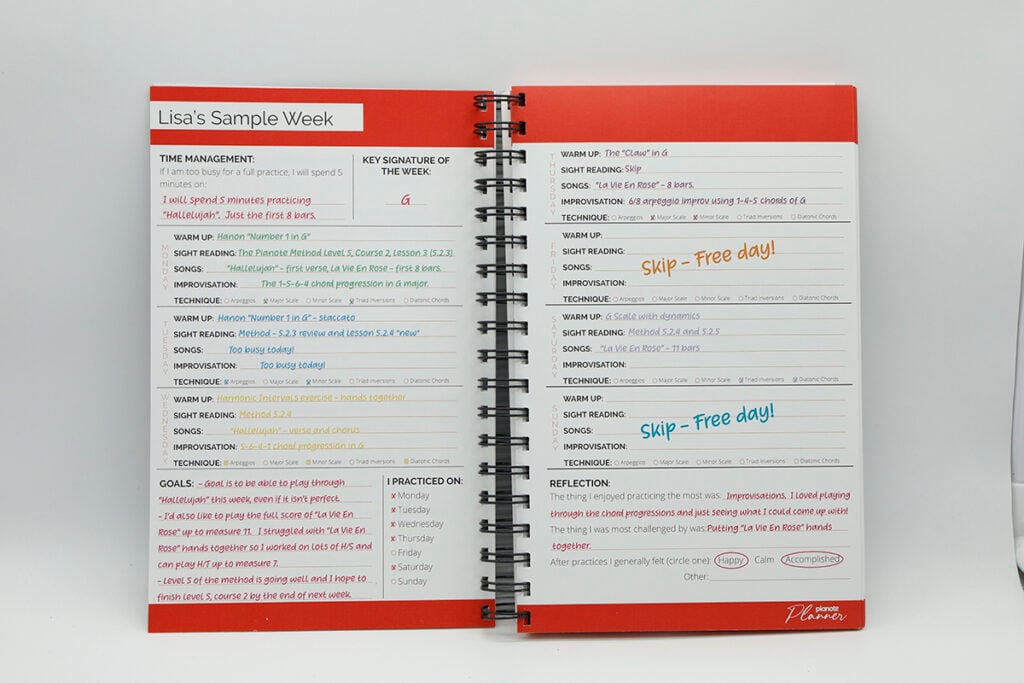 Lisa's Sample Week
TIME MANAGEMENT:
If I am too busy for a full practice, I will spend 5
minutes on:
I will spend 5 minutes practicing
"Hallelujah". Just the first 8 bars.
KEY SIGNATURE OF
THE WEEK:
G
MONDAY
WARM UP: Hanon "Number 1 in G"
SIGHT READING: The Pianote Method Level 5, Course 2, Lesson 3 (5.2.3)
SONGS: "Hallelujah" - first verse, La Vie En Rose - first 8 bars.
IMPROVISATION: The 1-5-6-4 chord progression in G major.
TECHNIQUE: Arpeggios Major Scale Minor Scale Triad Inversions Diatonic Chords
TUESDAY
WARM UP: Hanon "Number 1 in G" - staccato
SIGHT READING: Method - 5.2.3 review and lesson 5.2.4 "new"
SONGS: Too busy today!
IMPROVISATION: Too busy today!
TECHNIQUE: Arpeggios Major Scale Minor Scale Triad Inversions Diatonic Chords
WEDNESDAY
WARM UP: Harmonic Intervals exercise - hands together
SIGHT READING: Method 5.2.4
SONGS: "Hallelujah" - verse and chorus
IMPROVISATION: 5-6-4-1 chord progression in G
TECHNIQUE: Arpeggios Major Scale Minor Scale Triad Inversions Diatonic Chords
GOALS: - Goal is to be able to play through
"Hallelujah" this week, even if it isn't perfect.
- I'd also like to play the full score of "La Vie En
Rose" up to measure 11. I struggled with "La Vie En
Rose" hands together so I worked on lots of H/S and
can play H/T up to measure 7.
- Level 5 of the method is going well and I hope to
finish level 5, course 2 by the end of next week.
I PRACTICED ON:
Monday
Tuesday
Wednesday
Thursday
Friday
Saturday
Sunday
THURSDAY
WARM UP: The "Claw" in G
SIGHT READING: Skip
SONGS: "La Vie En Rose" - 8 bars.
IMPROVISATION: 6/8 arpeggio improv using 1-4-5 chords of G
TECHNIQUE: Arpeggios Major Scale Minor Scale Triad Inversions Diatonic Chords
FRIDAY
WARM UP:
SIGHT READING:
Skip - Free day!
SONGS:
IMPROVISATION:
TECHNIQUE: Arpeggios Major Scale Minor Scale Triad Inversions Diatonic Chords
SATURDAY
WARM UP: G Scale with dynamics
SIGHT READING: Method 5.2.4 and 5.2.5
SONGS: "La Vie En Rose" - 11 bars
IMPROVISATION:
TECHNIQUE: Arpeggios Major Scale Minor Scale Triad Inversions Diatonic Chords
SUNDAY
WARM UP:
SIGHT READING:
Skip - Free day!
SONGS:
IMPROVISATION:
TECHNIQUE: Arpeggios Major Scale Minor Scale Triad Inversions Diatonic Chords
REFLECTION:
The thing I enjoyed practicing the most was: Improvisations. I loved playing
through the chord progressions and just seeing what I could come up with!
The thing I was most challenged by was: Putting "La Vie En Rose" hands
together.
After practices I generally felt (circle one): Happy Calm Accomplished
Other:
pianote
Planner